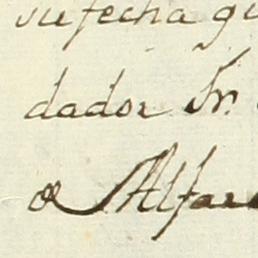 su fecha qu
dador Sr.
de Alfar